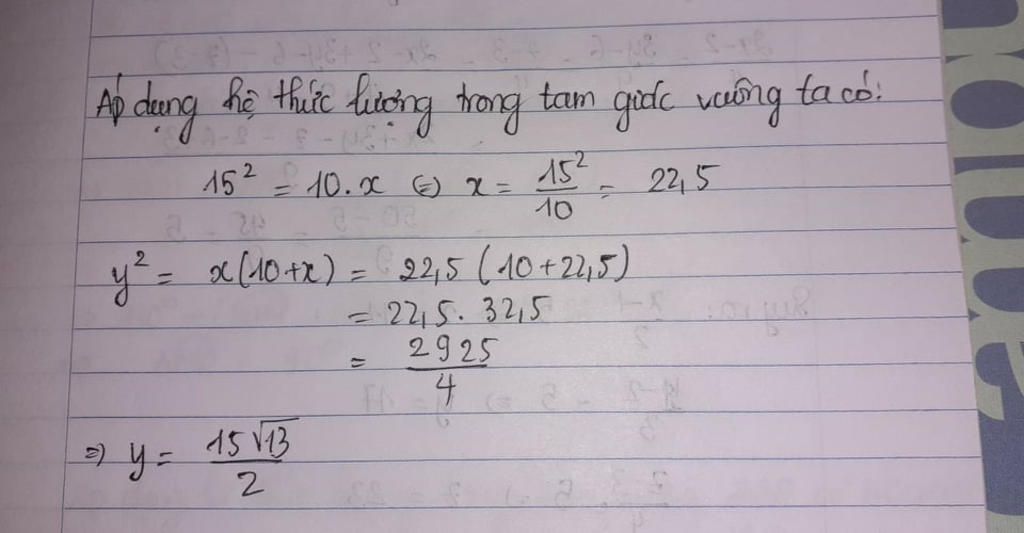 Áp dụng hệ thức lượng trong tam giác vuông ta có:
15² = 10.x ⇔ x = 15²/10 = 22,5
y² = x(10+x) = 22,5 (10+22,5)
= 22,5. 32,5
= 2925/4
⇒ y = 15√13/2